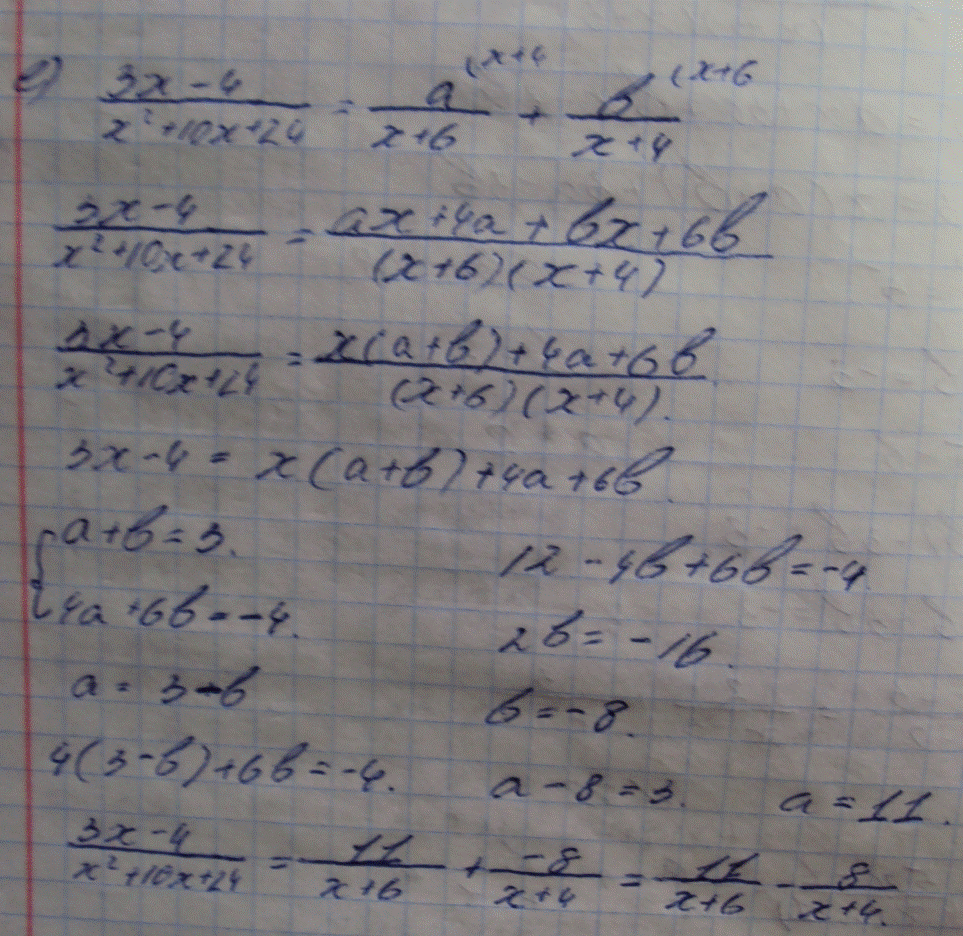 е) (3x-4)/(x²+10x+24) = a(x+4/(x+6) + b(x+6/(x+4)
(3x-4)/(x²+10x+24) = (ax+4a+bx+6b)/((x+6)(x+4))
(3x-4)/(x²+10x+24) = (x(a+b)+4a+6b)/((x+6)(x+4)).
3x-4 = x(a+b)+4a+6b.
{a+b=3.
4a+6b=-4.
a = 3-b
4(3-b)+6b=-4.
12-4b+6b=-4
2b=-16.
b=-8.
a-8=3. a=11.
(3x-4)/(x²+10x+24) = 11/(x+6) + -8/(x+4) = 11/(x+6) - 8/(x+4).